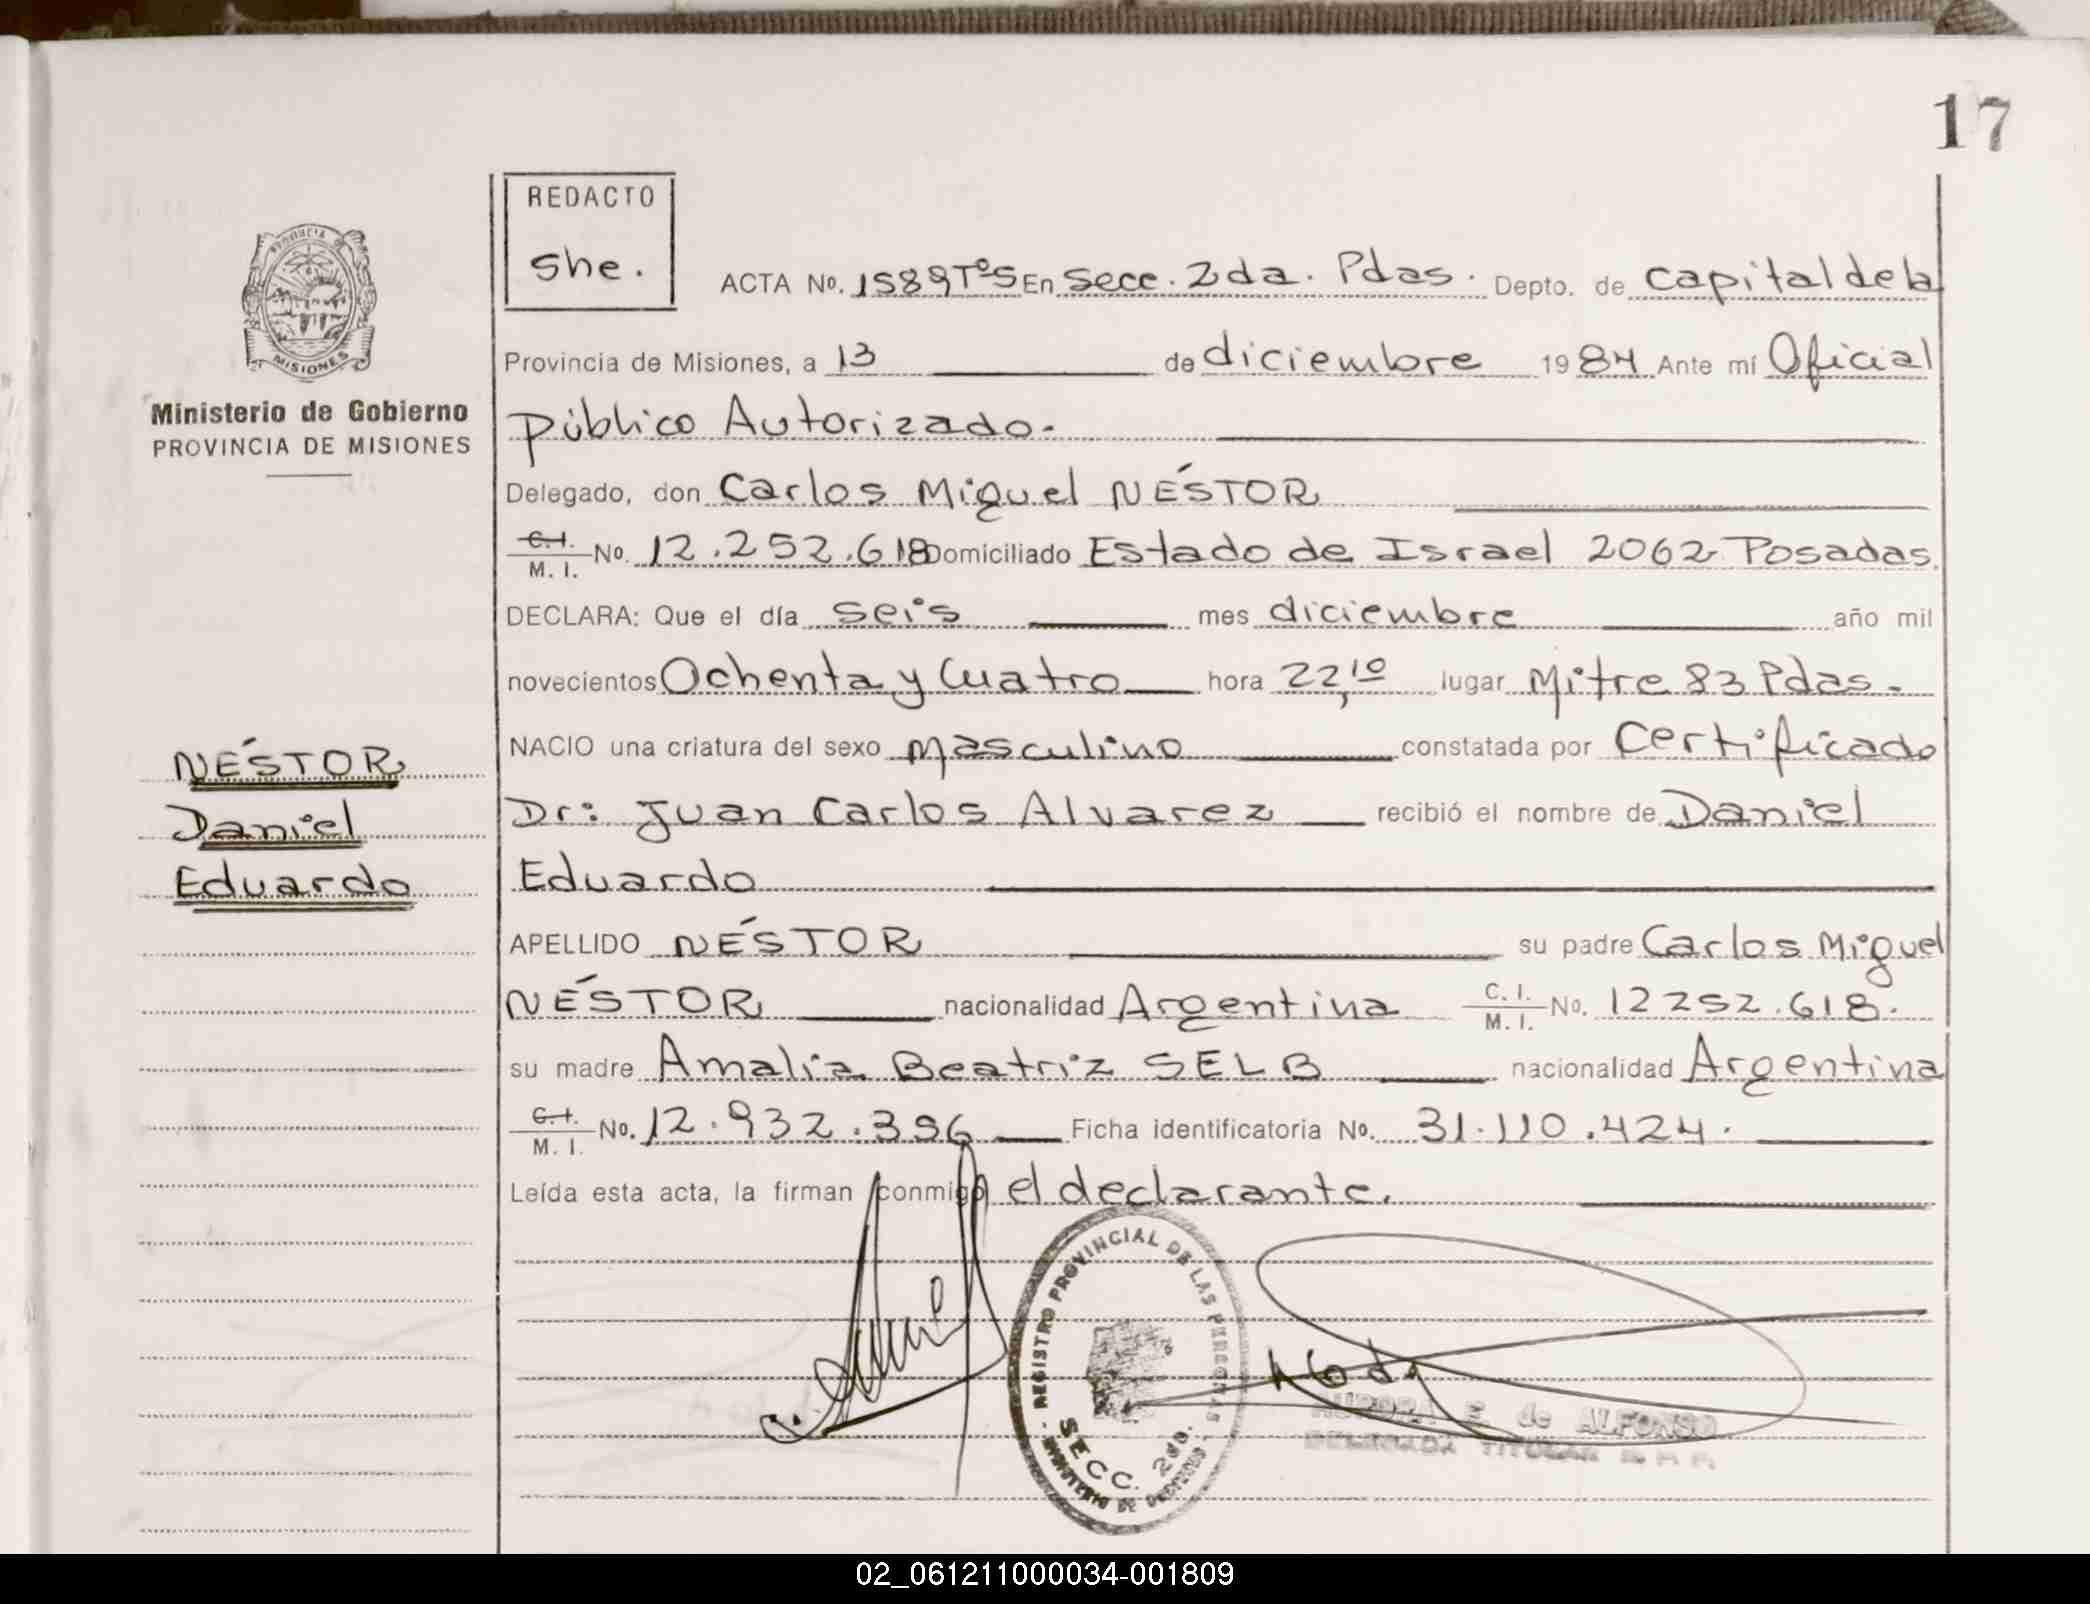 17
REDACTO
She.
PROVINCIA DE
MISIONES
Ministerio de Gobierno
PROVINCIA DE MISIONES
NÉSTOR
Daniel
Eduardo
ACTA No. 1589 Tº5 En Secc. 2da. Pdas. Depto. de Capital de la
Provincia de Misiones, a 13 de diciembre 1984 Ante mí Oficial
Público Autorizado.
Delegado, don Carlos Miguel NÉSTOR
C.I. M. I. No. 12.252.618 Domiciliado Estado de Israel 2062 Posadas.
DECLARA: Que el día seis mes diciembre año mil
novecientos Ochenta y Cuatro hora 22,10 lugar Mitre 83 Pdas.
NACIO una criatura del sexo masculino constatada por Certificado
Dr: Juan Carlos Alvarez recibió el nombre de Daniel
Eduardo
APELLIDO NÉSTOR su padre Carlos Miguel
NÉSTOR nacionalidad Argentina C. I. M. I. No. 12252.618.
su madre Amalia Beatriz SELB nacionalidad Argentina
C.I. M. I. No. 12.932.396 Ficha identificatoria No. 31.110.424.
Leída esta acta, la firman conmigo el declarante.
REGISTRO PROVINCIAL DE LAS PERSONAS
SECC. 2da.
MINISTERIO DE GOBIERNO
AURORA E. de ALFONSO
DELEGADA TITULAR
02_061211000034-001809